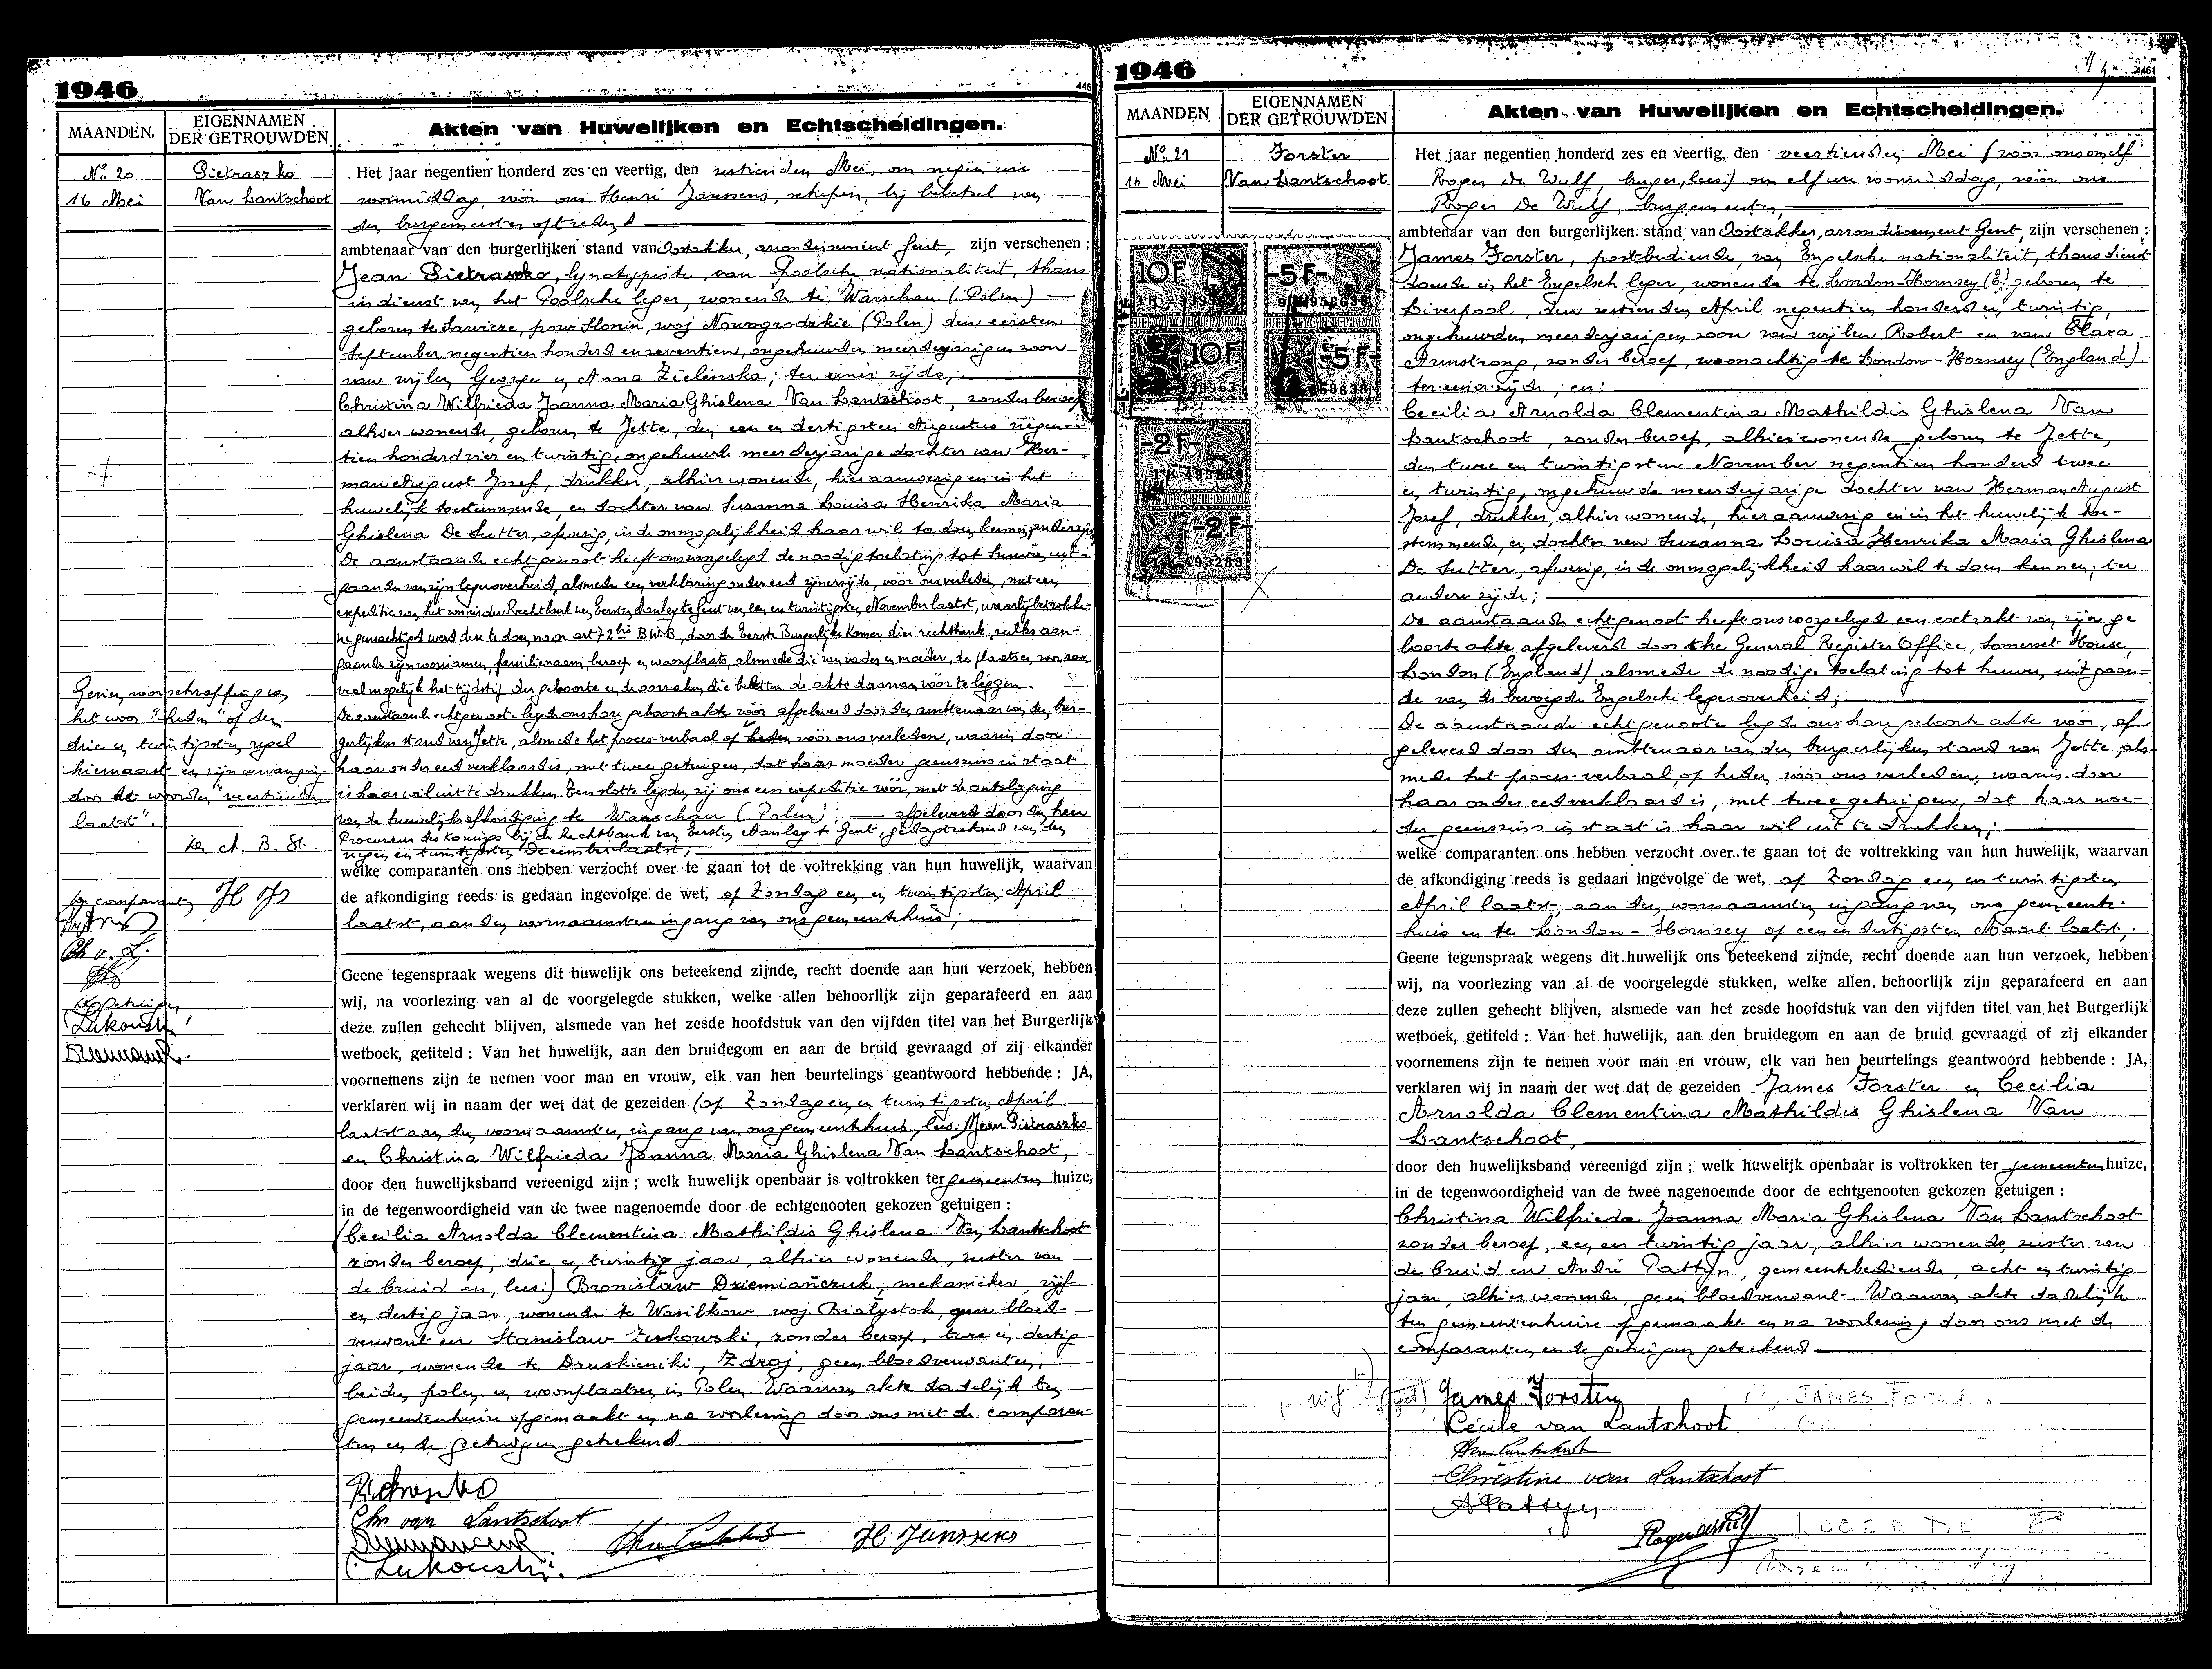 1946
446
MAANDEN.
EIGENNAMEN
DER GETROUWDEN
Akten van Huwelijken en Echtscheidingen.
No. 20
Pietraszko
16 Mei
Van Lantschoot
Het jaar negentien honderd zes en veertig, den zestienden Mei, om negen ure
voormiddag, vóór ons Henri Janssens, schepen, bij belet van
den burgemeester optredend
ambtenaar van den burgerlijken stand van Oostakker, arrondissement Gent, zijn verschenen :
Jean Pietraszko, lynotypiste, van Poolsche nationaliteit, thans
in dienst van het Poolsche leger, wonende te Warschau (Polen)
geboren te Sawicze, prow. Slonin, woj Nowogrodzkie (Polen) den eersten
September negentien honderd en zeventien, ongehuwden meerderjarigen zoon
van wijlen George en Anna Zielinska; ter eener zijde;
Christina Wilfrieda Joanna Maria Ghislena Van Lantschoot, zonder beroep
alhier wonende, geboren te Jette, den een en dertigsten Augustus negen-
tien honderd vier en twintig, ongehuwde meerderjarige dochter van Her-
man August Jozef, drukker, alhier wonende, hier aanwezig en in het
huwelijk toestemmende, en dochter van Suzanna Louisa Henrika Maria
Ghislena De Sutter, afwezig, in de onmogelijkheid haar wil te doen kennen;
De aanstaande echtgenoot heeft ons voorgelegd de noodige toelating tot huwen, uit-
gaande van zijn legeroverheid, alsmede een verklaring onder eed zijnerzijds, vóór ons verleden, met een
expeditie van het vonnis der Rechtbank van Eersten Aanleg te Gent van een en twintigsten November laatst, waarbij betrokke-
ne gemachtigd werd deze te doen, naar art 72 bis B.W.B, door de Eerste Burgerlijke Kamer dier rechtbank, zulks aan-
gaande zijn voornamen, familienaam, beroep en woonplaats, alsmede die van vader en moeder, de plaats en voor zoo-
veel mogelijk het tijdstip der geboorte en de oorzaken die beletten de akte daarvan voor te leggen.
De aanstaande echtgenoote legde ons haar geboorteakte vóór afgeleverd door den ambtenaar van den bur-
gerlijken stand van Jette, alsmede het proces-verbaal op heden vóór ons verleden, waarin door
haar onder eed verklaard is, met twee getuigen, dat haar moeder geenszins in staat
is haar wil uit te drukken. Ten slotte legden zij ons een expeditie vóór, met de ontslaging
van de huwelijksafkondiging te Warschau (Polen), afgeleverd door den heer
Procureur des Konings bij de Rechtbank van Eersten Aanleg te Gent, gedagteekend van den
negen en twintigsten December laatst;
welke comparanten ons hebben verzocht over te gaan tot de voltrekking van hun huwelijk, waarvan
de afkondiging reeds is gedaan ingevolge de wet, op Zondag een en twintigsten April
laatst, aan den voornaamsten ingang van ons gemeentehuis;
Geene tegenspraak wegens dit huwelijk ons beteekend zijnde, recht doende aan hun verzoek, hebben
wij, na voorlezing van al de voorgelegde stukken, welke allen behoorlijk zijn geparafeerd en aan
deze zullen gehecht blijven, alsmede van het zesde hoofdstuk van den vijfden titel van het Burgerlijk
wetboek, getiteld : Van het huwelijk, aan den bruidegom en aan de bruid gevraagd of zij elkander
voornemens zijn te nemen voor man en vrouw, elk van hen beurtelings geantwoord hebbende : JA,
verklaren wij in naam der wet dat de gezeiden (op Zondag een en twintigsten April
laatst aan den voornaamsten ingang van ons gemeentehuis, lees: Jean Pietraszko
en Christina Wilfrieda Joanna Maria Ghislena Van Lantschoot,
door den huwelijksband vereenigd zijn ; welk huwelijk openbaar is voltrokken ter gemeenten huize,
in de tegenwoordigheid van de twee nagenoemde door de echtgenooten gekozen getuigen :
(Cecilia Arnolda Clementina Mathildis Ghislena Van Lantschoot
zonder beroep, drie en twintig jaar, alhier wonende, zuster van
de bruid en, lees:) Bronislaw Dziemiańczuk, mekanieker, vijf
en dertig jaar, wonende te Wasilkow woj. Bialystok, geen bloed-
verwant en Stanislaw Zukowski, zonder beroep, twee en dertig
jaar, wonende te Druskieniki, Zdroj, geen bloedverwanten,
beiden polen en woonplaatsen in Polen. Waarvan akte dadelijk ten
gemeentenhuize opgemaakt en na voorlezing door ons met de comparan-
ten en de getuigen geteekend.
Gezien voor schrapping van
het woord "heden" op den
drie en twintigsten regel
hiernaast en zijn vervanging
door de woorden "veertienden
laatst".
De A. B. St.
De comparanten H Js
Ch v. L.
De getuigen
Zukowski
Chr van Lantschoot
H. Janssens
Zukowski
1946
4461
MAANDEN
EIGENNAMEN
DER GETROUWDEN
Akten van Huwelijken en Echtscheidingen.
No. 21
Forster
14 Mei
Van Lantschoot
Het jaar negentien honderd zes en veertig, den veertienden Mei (vóór ons omelf
Roger De Wulf, burger, lees:) om elf ure voormiddag, vóór ons
Roger De Wulf, burgemeester,
ambtenaar van den burgerlijken stand van Oostakker, arrondissement Gent, zijn verschenen :
James Forster, postbediende, van Engelsche nationaliteit, thans dienst
doende in het Engelsch leger, wonende te London-Hornsey (E), geboren te
Liverpool, den zestienden April negentien honderd en twintig,
ongehuwden meerderjarigen zoon van wijlen Robert en van Clara
Armstrong, zonder beroep, woonachtig te London-Hornsey (England)
ter eener zijde; en:
Cecilia Arnolda Clementina Mathildis Ghislena Van
Lantschoot, zonder beroep, alhier wonende, geboren te Jette,
den twee en twintigsten November negentien honderd twee
en twintig, ongehuwde meerderjarige dochter van Herman August
Jozef, drukker, alhier wonende, hier aanwezig en in het huwelijk toe-
stemmende, en dochter van Suzanna Louisa Henrika Maria Ghislena
De Sutter, afwezig, in de onmogelijkheid haar wil te doen kennen; ter
andere zijde;
De aanstaande echtgenoot heeft ons voorgelegd een extrakt van zijn ge
boorteakte afgeleverd door the General Register Office, Somerset House,
London (England) alsmede de noodige toelating tot huwen, uitgaan-
de van de bevoegde Engelsche legeroverheid;
De aanstaande echtgenoote legde ons haar geboorte akte vóór, af
geleverd door den ambtenaar van den burgerlijken stand van Jette, als-
mede het proces-verbaal, op heden vóór ons verleden, waarin door
haar onder eed verklaard is, met twee getuigen, dat haar moe-
der geenszins in staat is haar wil uit te drukken;
welke comparanten ons hebben verzocht over te gaan tot de voltrekking van hun huwelijk, waarvan
de afkondiging reeds is gedaan ingevolge de wet, op Zondag een en twintigsten
April laatst, aan den voornaamsten ingang van ons gemeente-
huis en te London-Hornsey op een en dertigsten Maart laatst;
Geene tegenspraak wegens dit huwelijk ons beteekend zijnde, recht doende aan hun verzoek, hebben
wij, na voorlezing van al de voorgelegde stukken, welke allen behoorlijk zijn geparafeerd en aan
deze zullen gehecht blijven, alsmede van het zesde hoofdstuk van den vijfden titel van het Burgerlijk
wetboek, getiteld : Van het huwelijk, aan den bruidegom en aan de bruid gevraagd of zij elkander
voornemens zijn te nemen voor man en vrouw, elk van hen beurtelings geantwoord hebbende : JA,
verklaren wij in naam der wet dat de gezeiden James Forster en Cecilia
Arnolda Clementina Mathildis Ghislena Van
Lantschoot,
door den huwelijksband vereenigd zijn ; welk huwelijk openbaar is voltrokken ter gemeenten huize,
in de tegenwoordigheid van de twee nagenoemde door de echtgenooten gekozen getuigen :
Christina Wilfrieda Joanna Maria Ghislena Van Lantschoot
zonder beroep, een en twintig jaar, alhier wonende, zuster van
de bruid en André Pattyn, gemeentebediende, acht en twintig
jaar, alhier wonende, geen bloedverwant. Waarvan akte dadelijk
ten gemeentenhuize opgemaakt en na voorlezing door ons met de
comparanten en de getuigen geteekend
10F
-5F-
10F
-5F-
-2F-
1K 493288
-2F-
1K 493288
James Forster
JAMES FORSTER
Cécile van Lantschoot
Christine van Lantschoot
A Pattyn
Roger de Wulf
ROGER DE